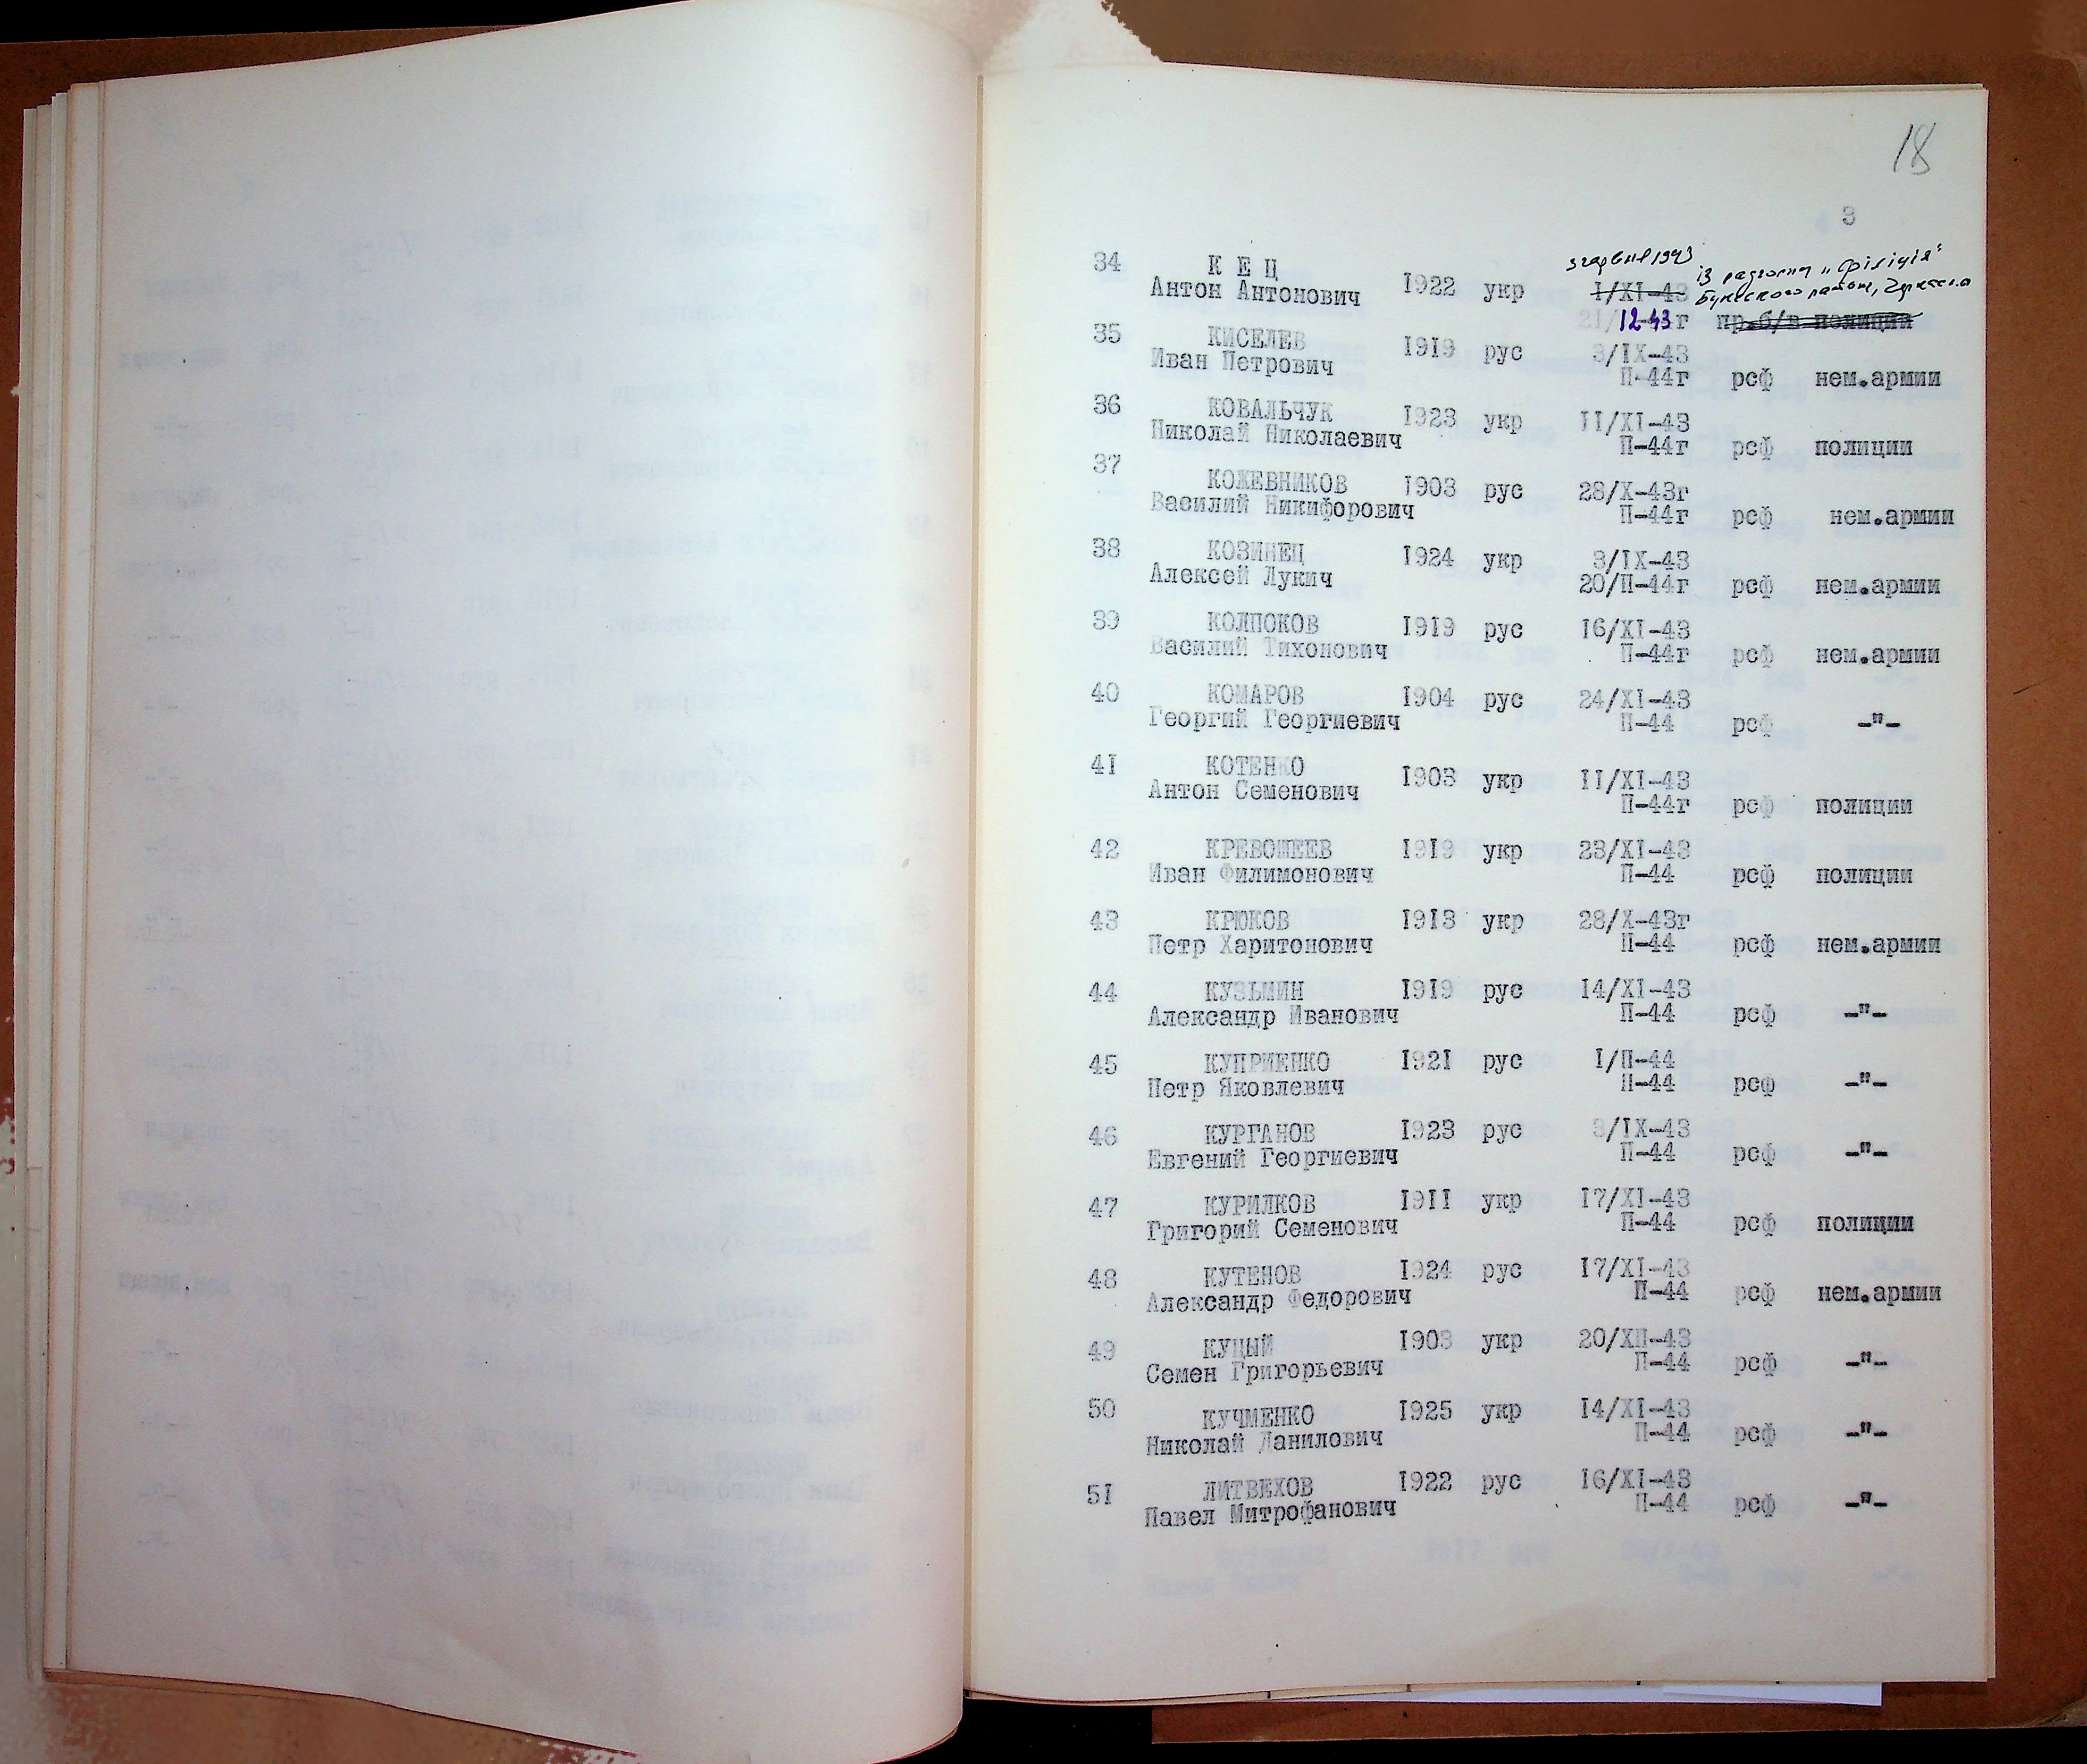 18
3
34 К Е Ц 1922 укр I/XI-43
Антон Антонович 12-43г пр.б/в полиции
35 КИСЕЛЕВ 1919 рус 3/IX-43
Иван Петрович П-44г рсф нем.армии
36 КОВАЛЬЧУК 1923 укр II/XI-43
Николай Николаевич П-44г рсф полиции
37 КОЖЕВНИКОВ 1903 рус 28/X-43г
Василий Никифорович П-44г рсф нем.армии
38 КОЗИНЕЦ 1924 укр 3/IX-43
Алексей Лукич 20/П-44г рсф нем.армии
39 КОЛПОКОВ 1919 рус 16/XI-43
Василий Тихонович П-44г рсф нем.армии
40 КОМАРОВ 1904 рус 24/XI-43
Георгий Георгиевич П-44 рсф -"-
41 КОТЕНКО 1903 укр II/XI-43
Антон Семенович П-44г рсф полиции
42 КРЕВОШЕЕВ 1919 укр 23/XI-43
Иван Филимонович П-44 рсф полиции
43 КРЮКОВ 1913 укр 28/X-43г
Петр Харитонович П-44 рсф нем.армии
44 КУЗЬМИН 1919 рус 14/XI-43
Александр Иванович П-44 рсф -"-
45 КУПРИЕНКО 1921 рус I/П-44
Петр Яковлевич П-44 рсф -"-
46 КУРГАНОВ 1923 рус 3/IX-43
Евгений Георгиевич П-44 рсф -"-
47 КУРИЛКОВ 1911 укр 17/XI-43
Григорий Семенович П-44 рсф полиции
48 КУТЕНОВ 1924 рус 17/XI-43
Александр Федорович П-44 рсф нем.армии
49 КУЦЫЙ 1903 укр 20/XП-43
Семен Григорьевич П-44 рсф -"-
50 КУЧМЕНКО 1925 укр 14/XI-43
Николай Данилович П-44 рсф -"-
51 ЛИТВЕХОВ 1922 рус 16/XI-43
Павел Митрофанович П-44 рсф -"-